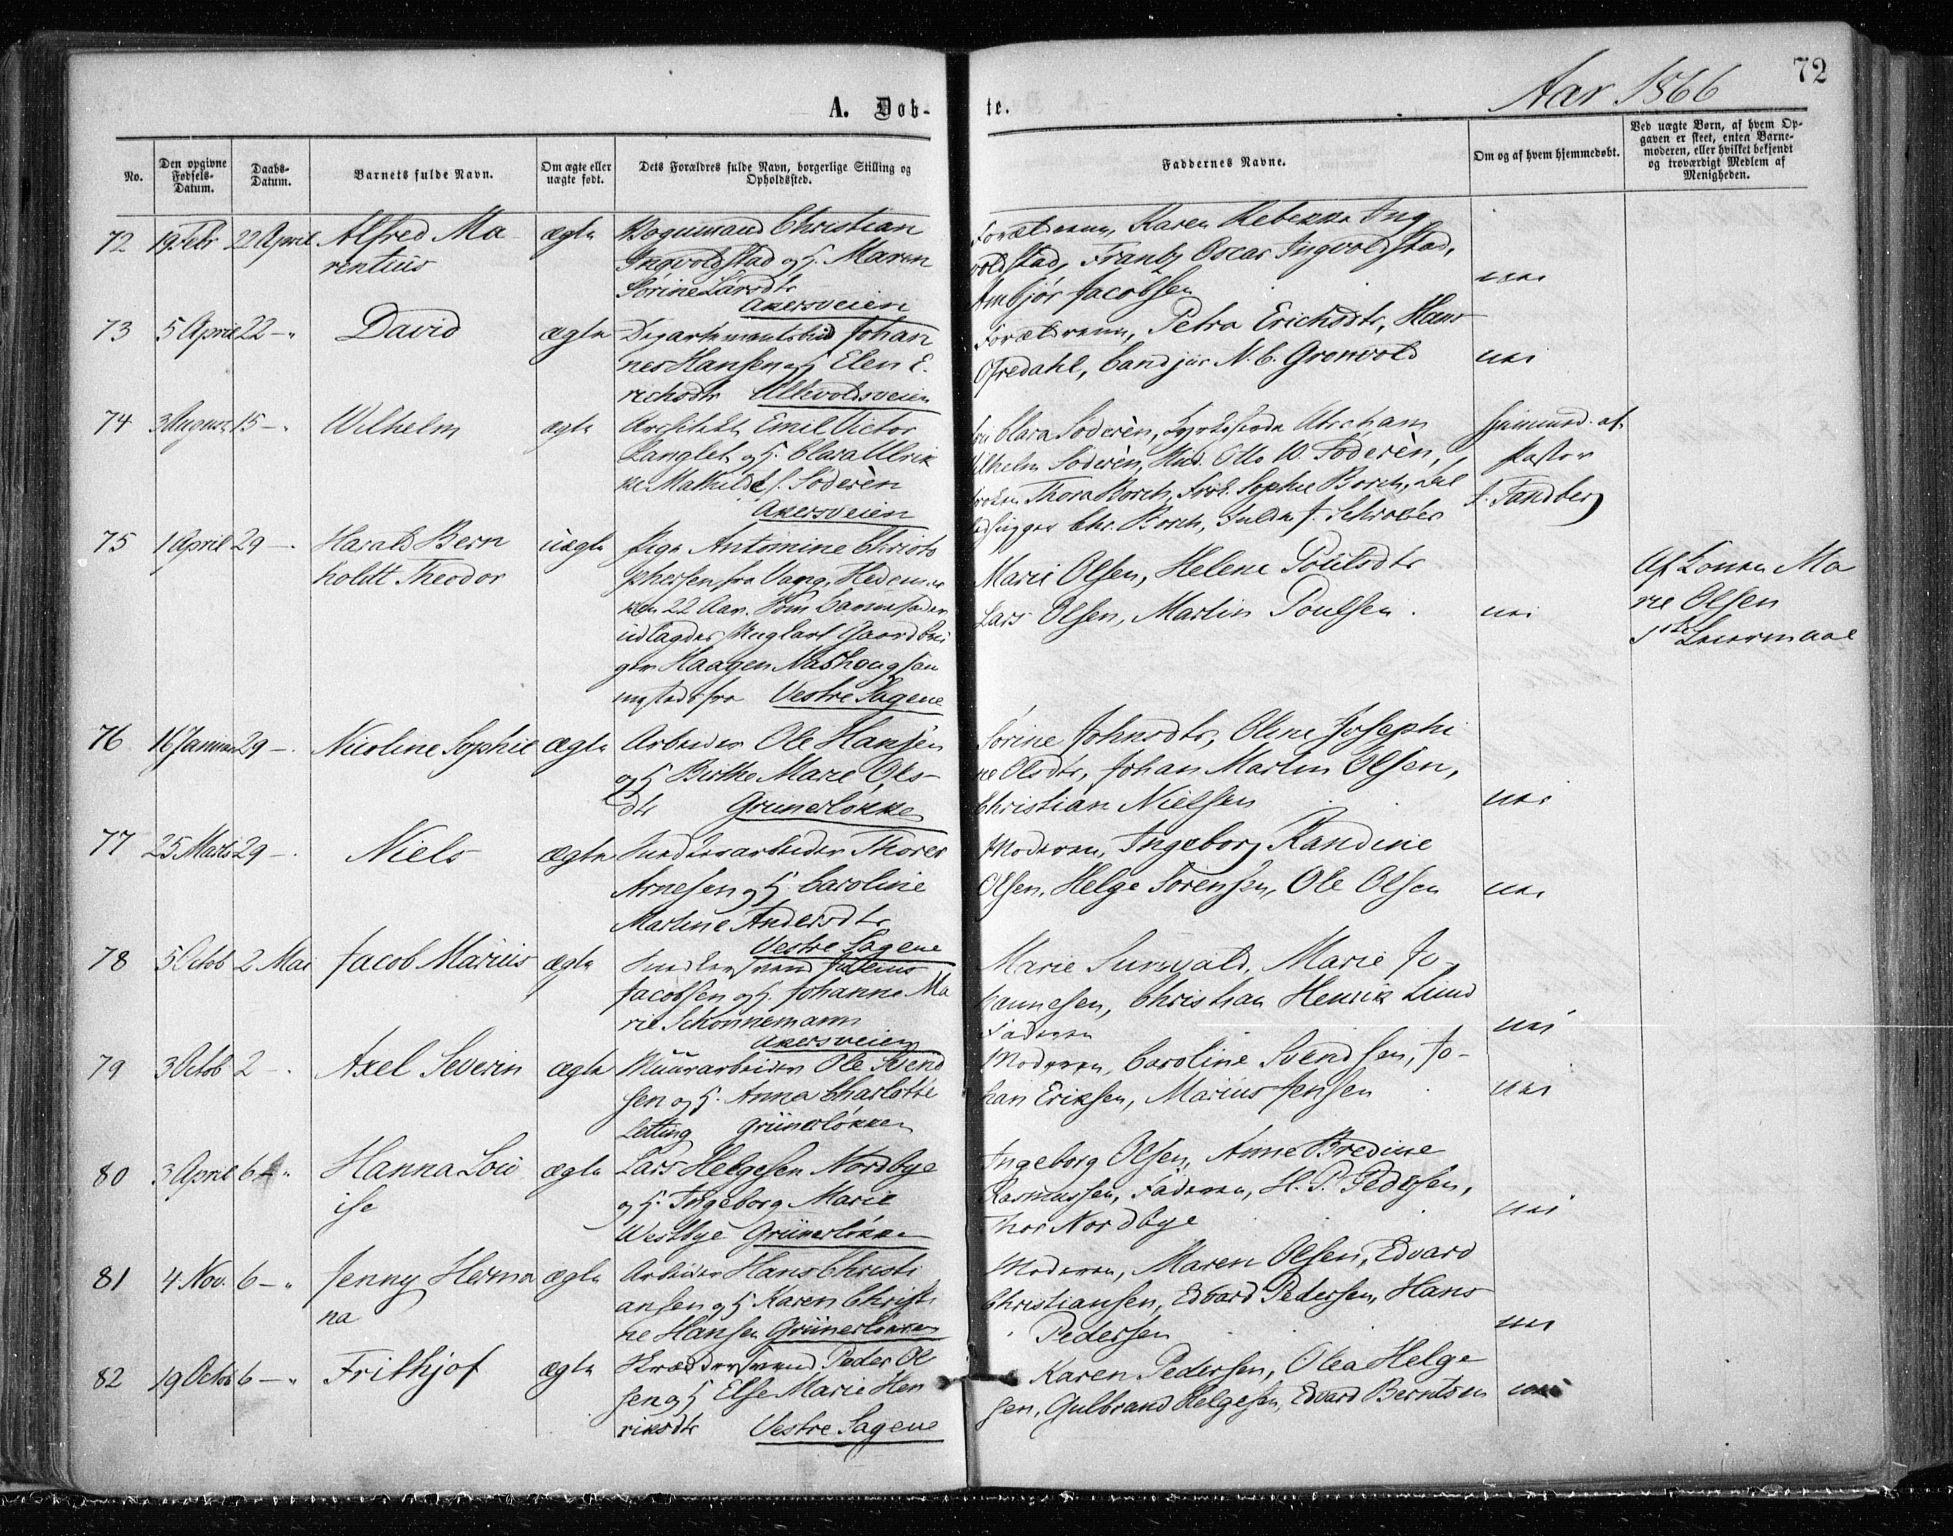 72
Aar 1866
A. Døb- te.
No.
Den opgivne Fødsels-Datum.
Daabs-Datum.
Barnets fulde Navn.
Om ægte eller uægte født.
Dets Forældres fulde Navn, borgerlige Stilling og Opholdssted.
Faddernes Navne.
Om og af hvem hjemmedøbt.
Ved uægte Børn, af hvem Opgaven er skeet, enten Barnemoderen, eller hvilket bekjendt og troværdigt Medlem af Menigheden.
72 19 Febr 22 April Alfred Ma
rentius
ægte
Christian
Ingvoldstad og H. Maren
Sørine Larsdtr
Akersveien
Forældrene, Karen Rebekka Ing
voldstad, Frantz Oscar Ingvoldstad,
Jacobsen
nei
73 5 April 22 - " David ægte
Departementsbud Johan
nes Hansen og H. Elen E.
richsdtr Ullevoldsveien
Forældrene, Petra Erichsdtr, Hans
N. C. Grønvold
nei
74 3 August 15 - " Wilhelm ægte
Architekt Emil Victor
Langlet og H. Clara Ulrik
ke Mathilde f. Søderèn
Akersveien
Clara Søderèn, Abraham
Wilhelm Søderèn, Stud. Otto W. Søderèn,
Frøken Thora Borch, Frøk. Sophie Borch,
Chr. Borch, J. Schrøder
hjemmed. af
Pastor
J. Tandberg
75 1 April 29 - " Harald Bern
holdt Theodor
uægte
Pige Antomine Christo
phersen fra Vang, Hedemar
ken 22 Aar. Som barnefader
udlagdes Ungkarl Gaardbru
ger Haagen
fra Vestre Sagene
Marie Olsen, Helene Poulsdtr
Lars Olsen, Martin Poulsen.
nei
Af Konen Ma
rie Olsen
1ste Leiermaal
76 16 Januar 29 - Nicoline Sophie ægte
Arbeider Ole Hansen
og H Birthe Marie Ols-
dtr Grünerløkken
Sørine Johnsdtr, Oline Josephi
ne Olsdtr, Johan Martin Olsen,
Christian Nielsen
nei
77 25 Marts 29 - . Niels ægte
Thorer
Arnesen og H. Caroline
Martine Andersdtr
Vestre Sagene
Moderen, Ingeborg Randine
Olsen, Helge Sørensen, Ole Olsen
nei
78 5 Octob 2 Mai Jacob Marius ægte
Snedkersvend Julius
Jacobsen og H. Johanne Ma
rie Schønnemann
Akersveien
Marie Sunvald, Marie Jo-
hannesen, Christian Henrik Lund
Faderen
nei
79 3 Octob 2 - . Axel Severin ægte
Muurarbeider Ole Svend
sen og H. Anna Charlotte
Letting Grünerløkken
Moderen, Caroline Svendsen, Jo-
han Eriksen, Marius Jensen
nei
80 3 April 6 - " Hanna Lou
ise
ægte
Lars Helgesen Nordbye
og H. Ingeborg Marie
Westbye Grünerløkken
Ingeborg Olsen, Anne Bredine
Rasmussen, Faderen, H. P. Pedersen,
Thor Nordbye
nei
81 4 Nov. 6 - " Jenny Herma
na
ægte
Arbeider Hans Christi
ansen og H Karen Christi
ne Hansen Grünerløkken
Moderen, Maren Olsen, Edvard
Christiansen, Edvard Pedersen, Hans
Pedersen
nei
82 19 Octob 6 - " Frithjof ægte
Skræddersvend Peder Ol
sen og H Else Marie Hen
riksdtr Vestre Sagene
Karen Pedersen, Olea Helge
sen, Gulbrand Helgesen, Edvard Berntsen
nei